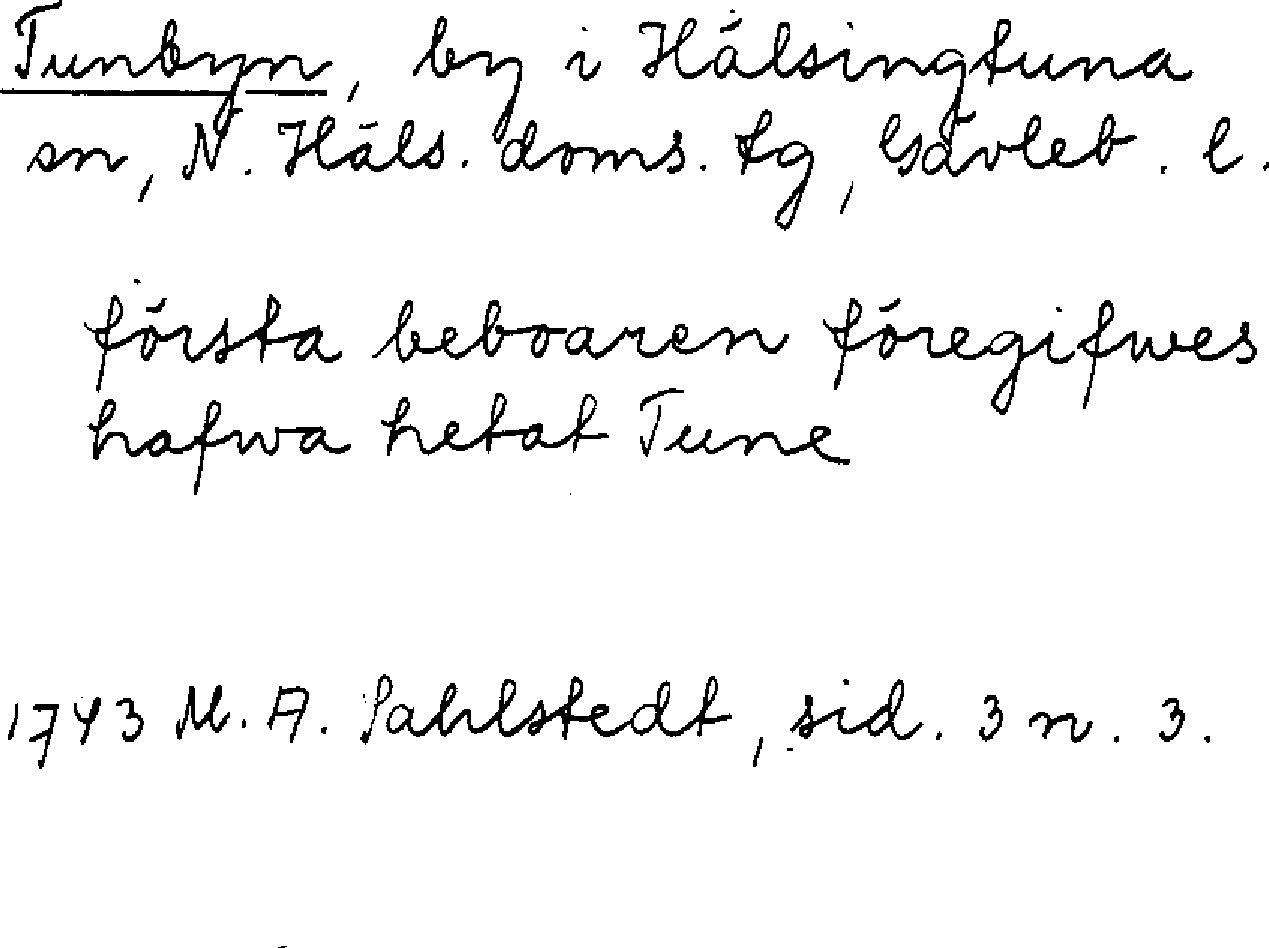 Tunbyn, by i Hälsingtuna
sn, N. Häls. doms. tg, Gävleb. l.
första beboaren föregifwes
hafwa hetat Tune
1743 M. A. Sahlstedt, sid. 3 n. 3.